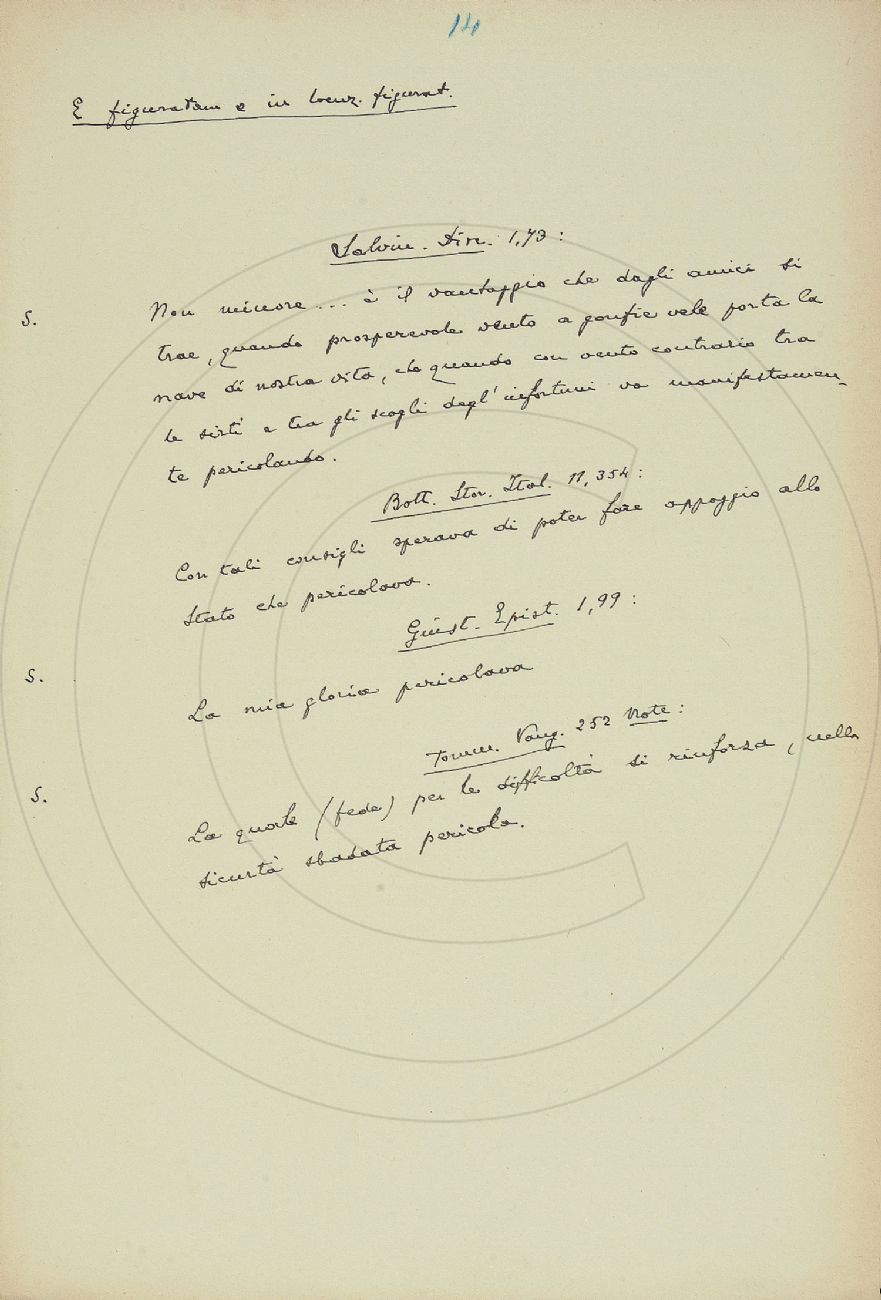 14
E figuratam e in locuz. figurat.
Salvin. Disc. 1,73 :
S.
Non minore ... è il vantaggio che dagli amici si
trae, quando prosperevole vento a gonfie vele porta la
nave di nostra vita, che quando con vento contrario tra
le sirti e tra gli scogli degl' infortuni va manifestamen-
te pericolando.
Bott. Stor. Ital. 11, 354 :
Con tali consigli sperava di poter fare appoggio allo
Stato che pericolava.
Giust. Epist. 1,99 :
S.
La mia gloria pericolava
Tomm. Vang. 252 Note :
S.
La quale (fede) per le difficoltà si rinforza, nella
sicurtà sbadata pericola.